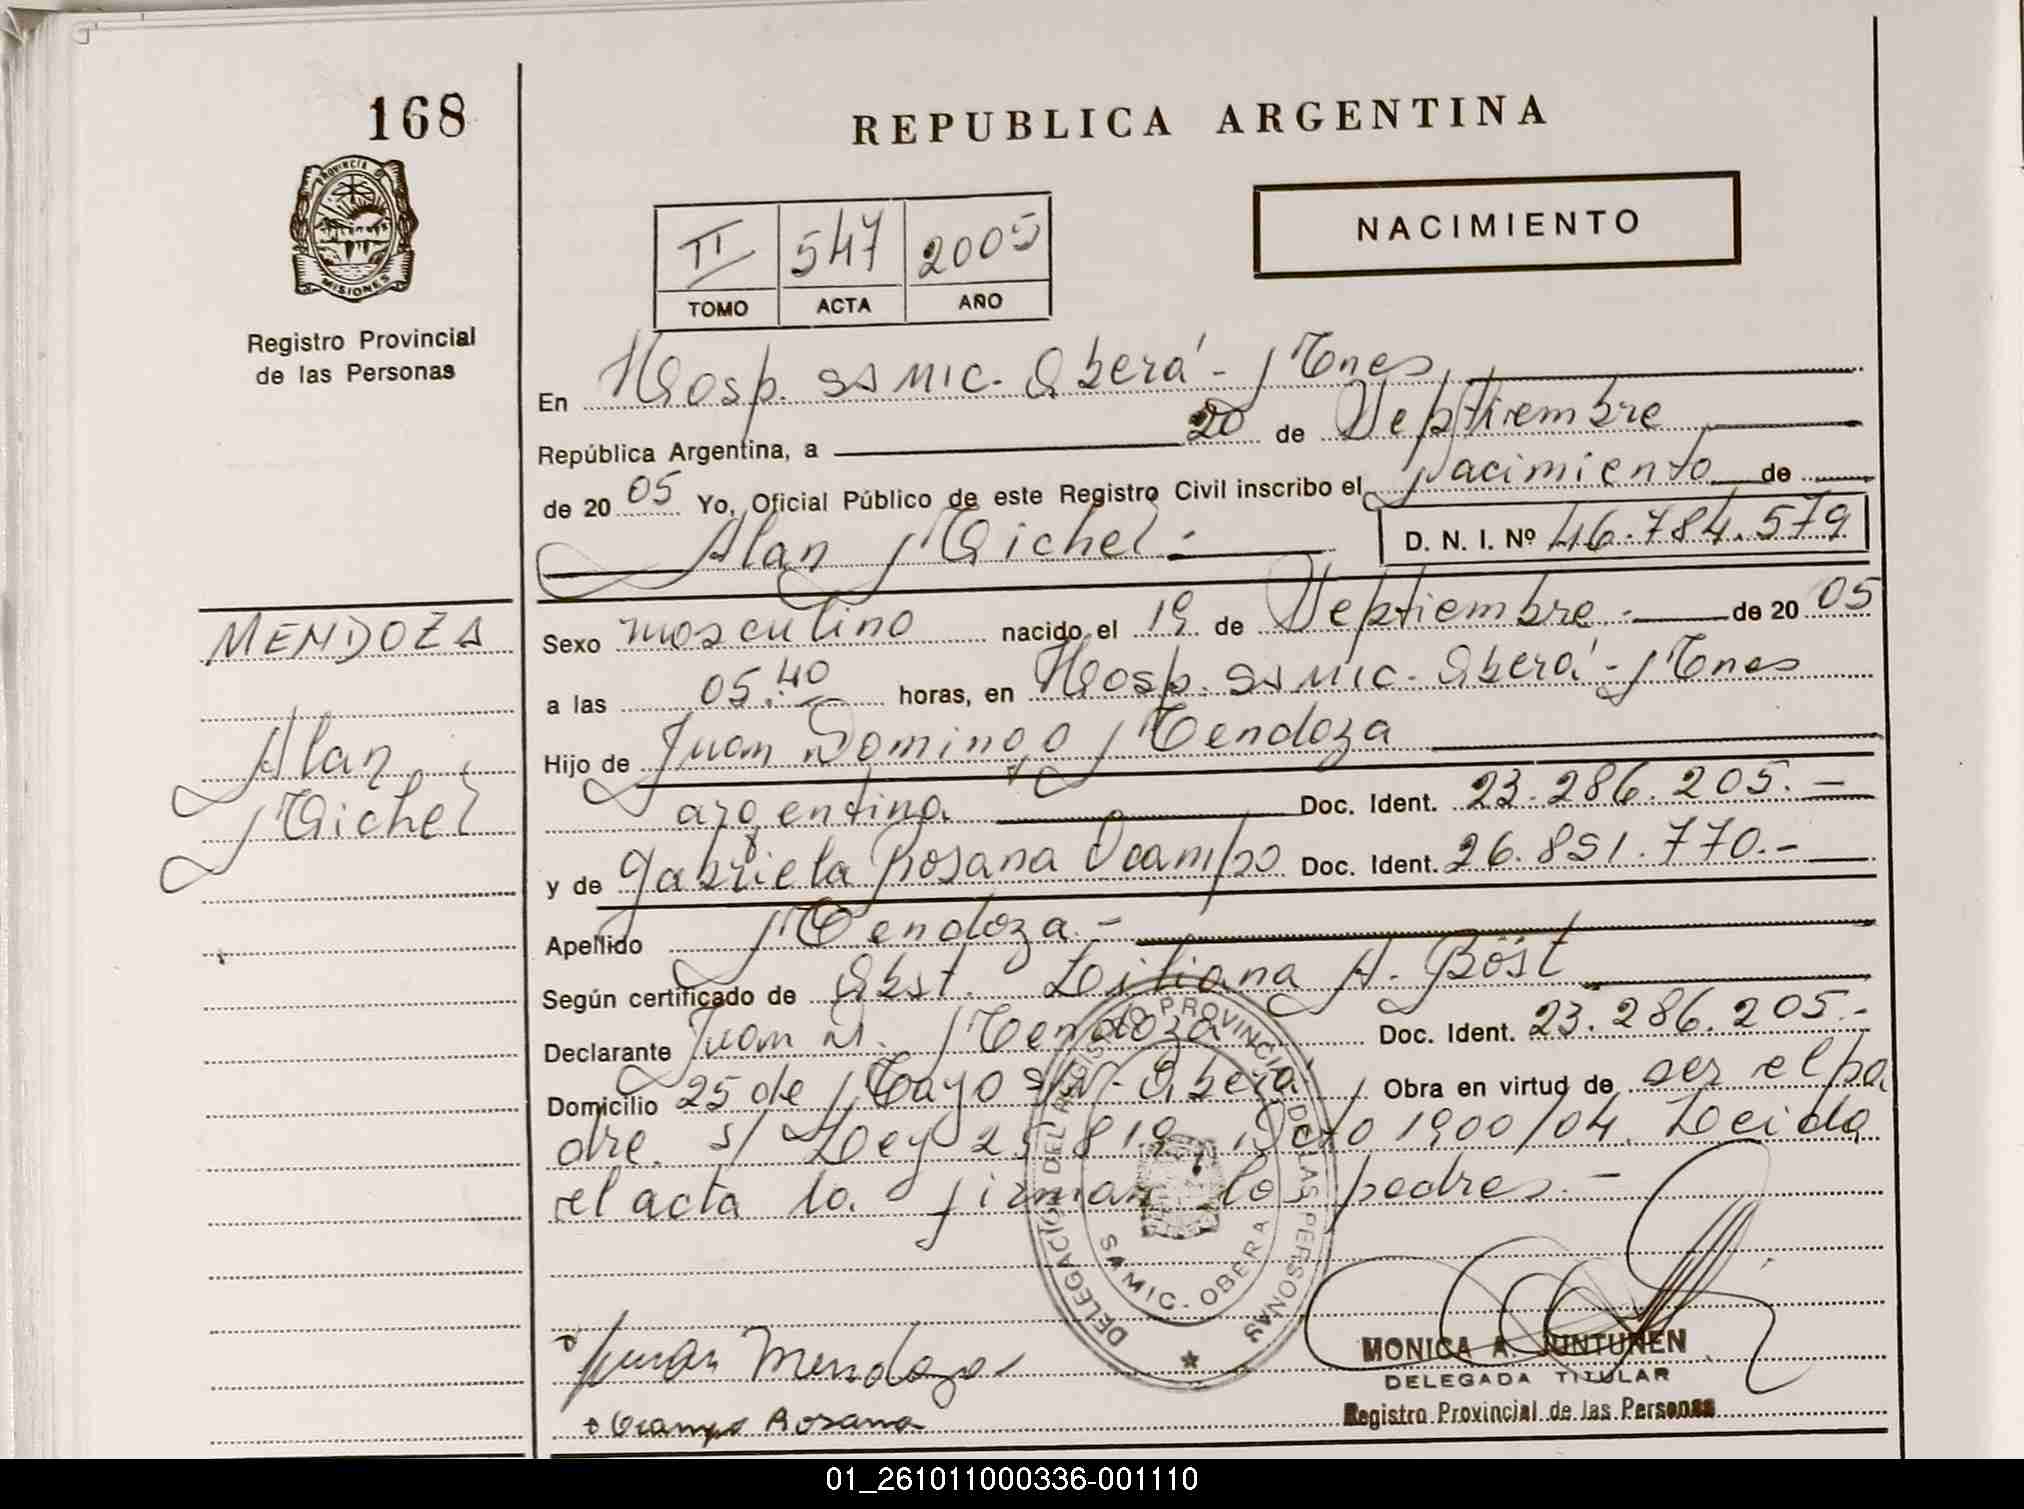 168
PROVINCIA DE
MISIONES
Registro Provincial
de las Personas
REPUBLICA ARGENTINA
NACIMIENTO
II 547 2005
TOMO ACTA AÑO
En Hosp. SAMIC. Oberá - Mnes
República Argentina, a 20 de Septiembre
de 20 05 Yo, Oficial Público de este Registro Civil inscribo el nacimiento de
Alan Michel - D. N. I. Nº 46.784.579
MENDOZA
Alan
Michel
Sexo masculino nacido el 19 de Septiembre.- de 20 05
a las 05:40 horas, en Hosp. SAMIC. Oberá - Mnes
Hijo de Juan Domingo Mendoza
argentino Doc. Ident. 23.286.205.-
y de Gabriela Rosana Ocampo Doc. Ident. 26.891.770.-
Apellido Mendoza.-
Según certificado de Obst. Liliana A. Böst
Declarante Juan D. Mendoza Doc. Ident. 23.286.205.-
Domicilio 25 de Mayo s/n - Oberá Obra en virtud de ser el pa
dre. s/ Ley 25.819, Dcto 1900/04. Leida
el acta la firman los padres.-
DELEGACIÓN DEL REGISTRO PROVINCIAL DE LAS PERSONAS
SAMIC - OBERA
Juan Mendoza
Ocampo Rosana
MONICA A. JUNTUNEN
DELEGADA TITULAR
Registro Provincial de las Personas
01_261011000336-001110